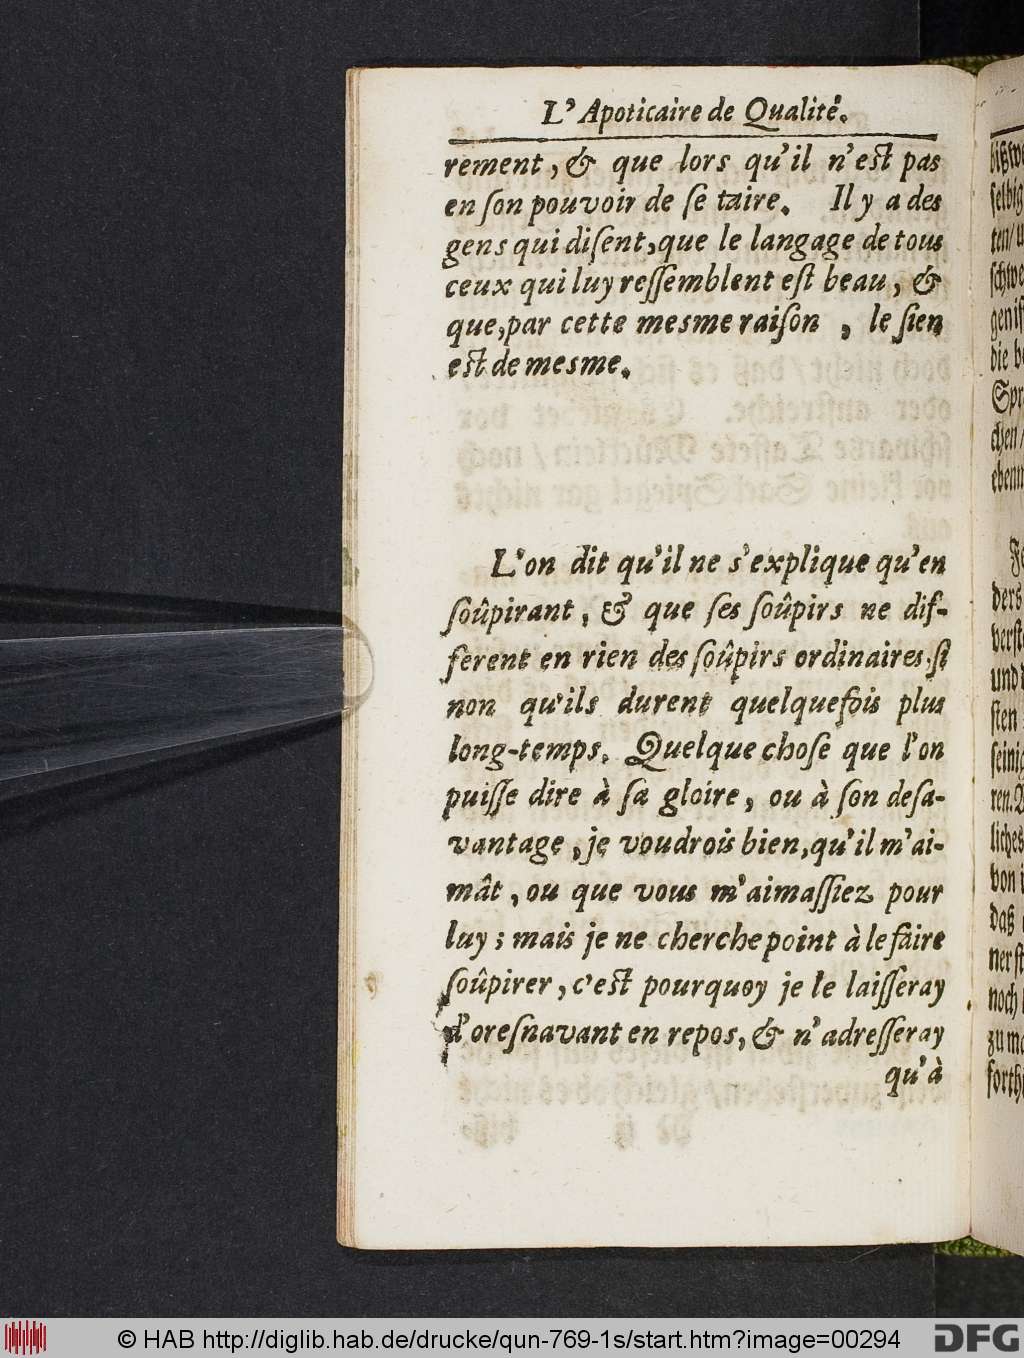 L' Apoticaire de Qualité.
rement, & que lors qu'il n'eſt pas
en ſon pouvoir de ſe taire. Il y a des
gens qui diſent, que le langage de tous
ceux qui luy reſſemblent eſt beau, &
que, par cette mesme raiſon , le ſien
eſt de mesme.
L'on dit qu'il ne s'explique qu'en
ſoûpirant, & que ſes ſoûpirs ne dif-
ferent en rien des ſoûpirs ordinaires, ſi
non qu'ils durent quelquefois plus
long-temps. Quelque choſe que l'on
puiſſe dire à ſa gloire, ou à ſon deſa-
vantage, je voudrois bien, qu'il m'ai-
mât, ou que vous m'aimaſſiez pour
luy; mais je ne cherche point à le faire
ſoûpirer, c'eſt pourquoy je le laiſſeray
d'oreſnavant en repos, & n'adreſſeray
qu'à
ſelbig
ten/u
ſchwe
die b
Spr
chen/
ebenn
ders
verſt
ſten
ſeinig
liches
von
daß
ner ſt
noch
zu ma
forthi
© HAB http://diglib.hab.de/drucke/qun-769-1s/start.htm?image=00294
DFG